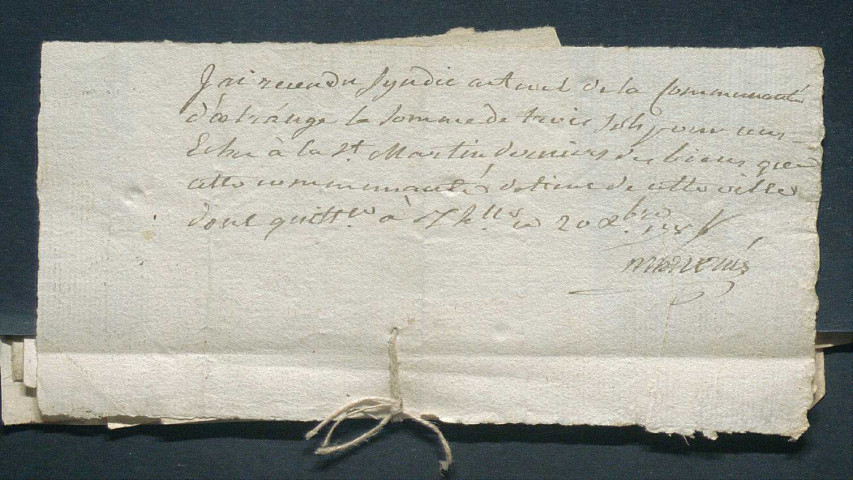 J'ai receu du Syndic actuel de la Communauté
d'oetrange la Somme de trois Sols pour cens
Echu à la St. Martin dernier des biens que
cette communauté detient de cette ville
dont quitt.ce à Th.lle ce 20 Xbre